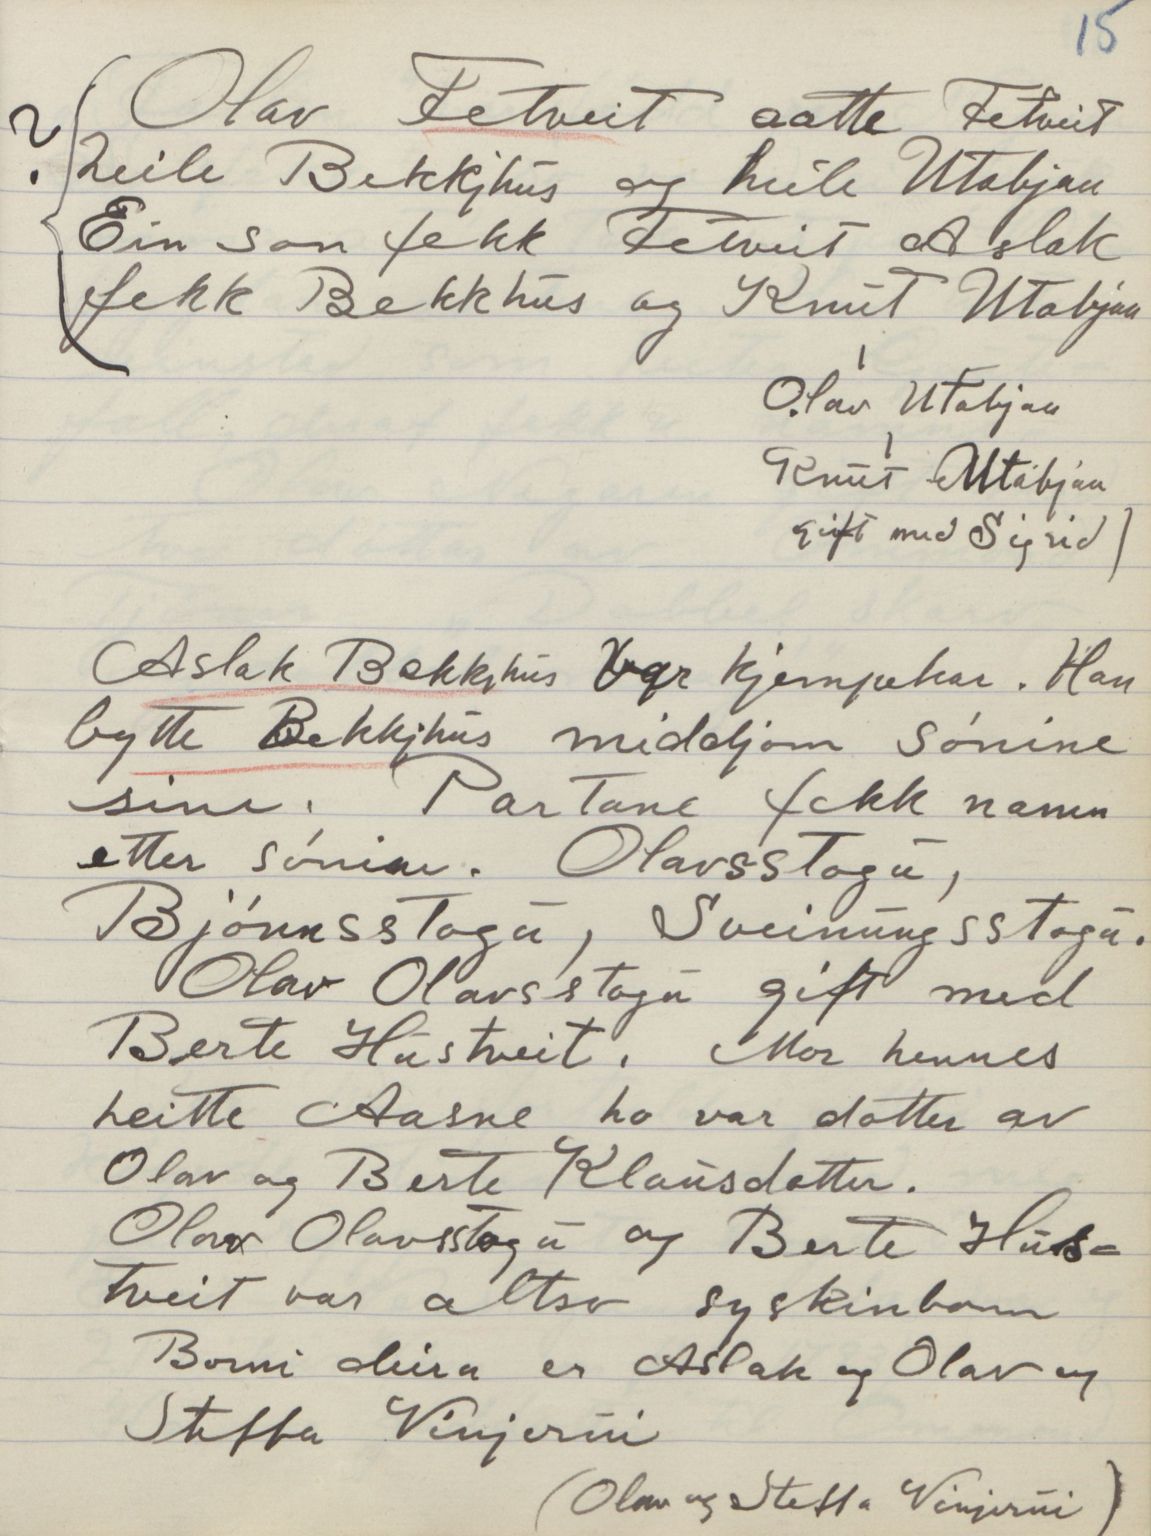 15
? Olav Fetveit aatte Fetveit
heile Bekkjhus og heile Utabjaa
Ein son fekk Fetveit Aslak
fekk Bekkhus og Knut Utabjaa
Olav Utabjaa
Knut Utabjaa
gift med Sigrid)
Aslak Bekkjhus var kjempekar. Han
bytte Bekkjhus middjom sónine
sine. Partane fekk namn
etter sónine. Olavsstogu,
Bjónnsstogu, Sveinungsstogu.
Olav Olavsstogu gift med
Berte Hustveit. Mor hennes
heitte Aasne ho var dotter av
Olav og Berte Klausdotter.
Olav Olavsstogu og Berte Hus=
tveit var altso syskinbonn
Borni deira er Aslak og Olav og
Steffa Vinjerui
(Olav og Steffa Vinjerui)